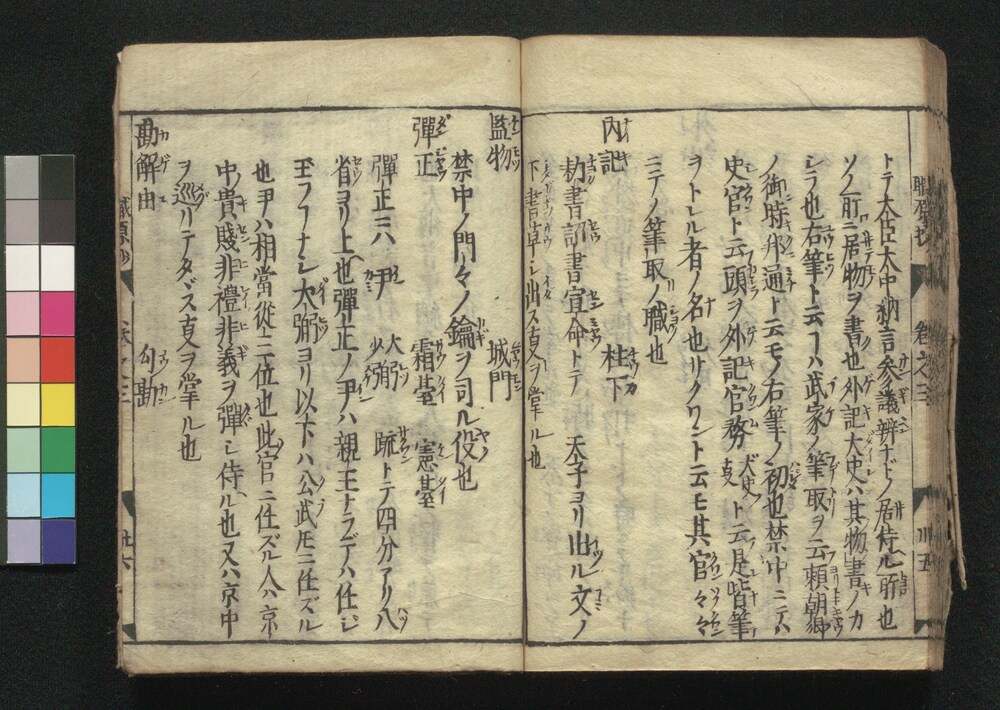 トテ大臣大中納言参議辨ナドノ居侍ル所也
ソノ前ニ居物ヲ書也外記大史ハ其物書ノカ
シラ也右筆ト云フハ武家ノ筆取ヲ云頼朝卿
ノ御時邦通ト云モノ右筆ノ初也禁中ニテハ
史官ト云頭ヲ外記官務大史ト云是皆筆
ヲトレル者ノ名也サクワント云モ其官々々
ニテノ筆取ノ職也
内記 柱下
勅書詔書宣命トテ 天子ヨリ出ル文ノ
下書草シ出ス㕝ヲ掌ル也
監物 城門
禁中ノ門々ノ鑰ヲ司ル役也
彈正 霜臺 憲臺
彈正ニハ尹 大弼 少弼 疏トテ四分アリ八
省ヨリ上也彈正ノ尹ハ親王ナラデハ任じ
玉フナシ大弼ヨリ以下ハ公武トモニ任ズル
也尹ハ相當從三位也此官ニ任ズル人ハ京
中ノ貴賤非禮非義ヲ彈シ侍ル也又ハ京中
ヲ巡リテタダス㕝ヲ掌ル也
勘解由 勾勘
職原抄 卷之三 卅五
職原抄 卷之三 卅六